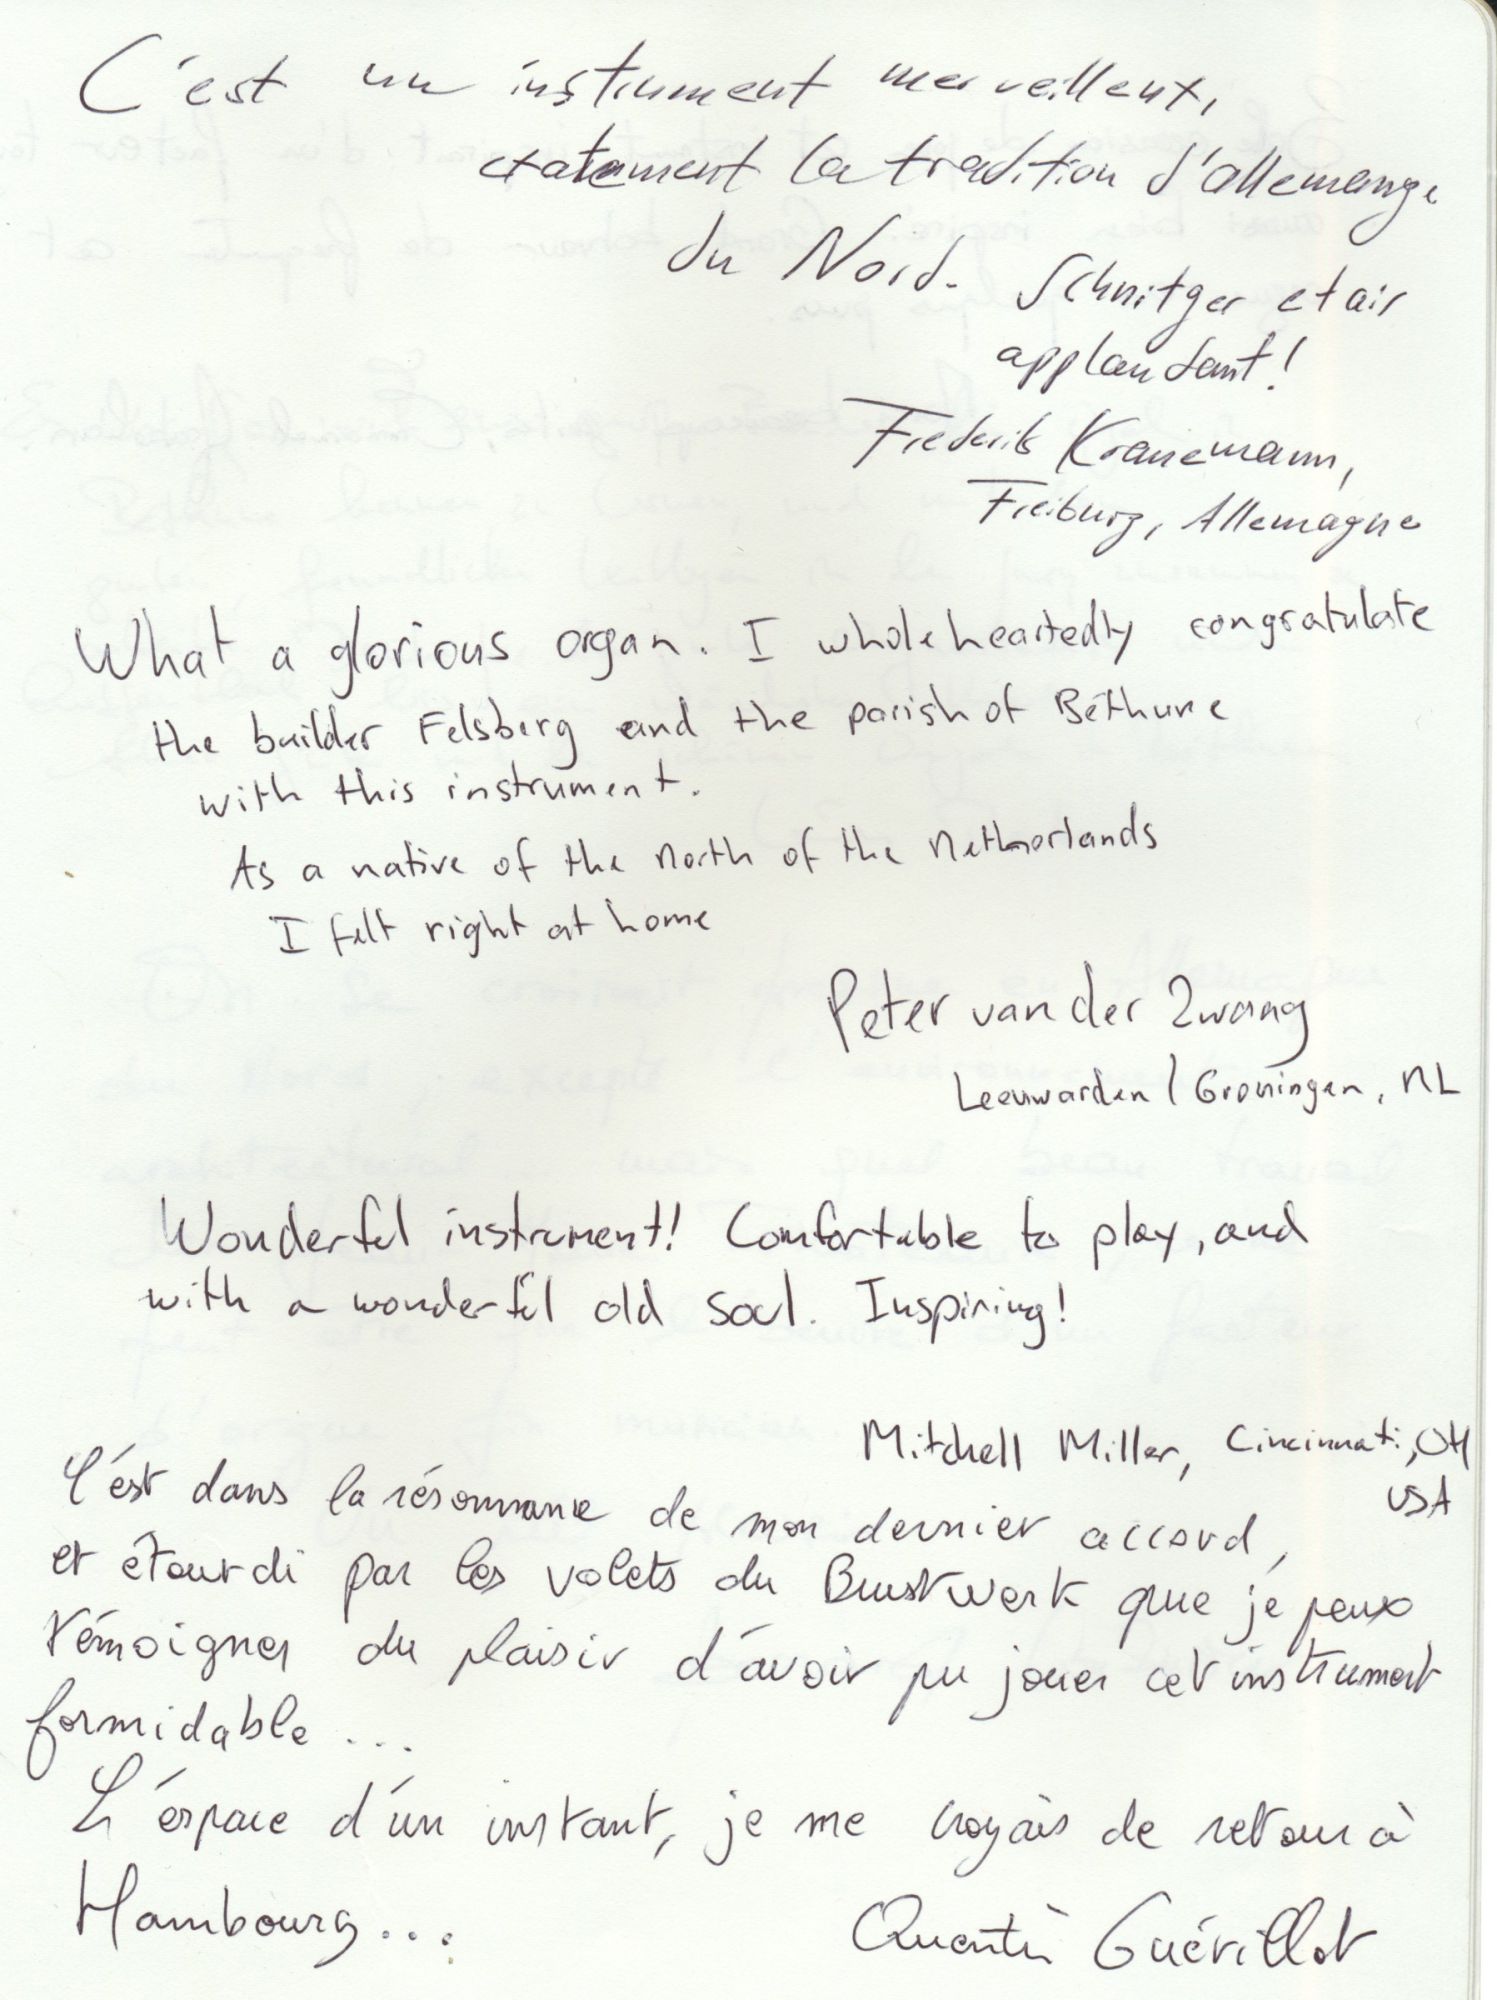 C'est un instrument merveilleux,
exatement la tradition d'allemange
du Nord. Schnitger etair
applaudant!
Frederik Kranemann,
Freiburg, Allemagne
What a glorious organ. I wholeheartedly congratulate
the builder Felsberg and the parish of Béthune
with this instrument.
As a native of the north of the Netherlands
I felt right at home
Peter van der Zwaag
Leeuwarden / Groningen, NL
Wonderful instrument! Comfortable to play, and
with a wonderful old soul. Inspiring!
Mitchell Miller, Cincinnati, OH
USA
C'est dans la résonnance de mon dernier accord,
et étourdi par les volets du Brustwerk que je peux
témoigner du plaisir d'avoir pu jouer cet instrument
formidable ...
L'espace d'un instant, je me croyais de retour à
Hambourg...
Quentin Guérillot